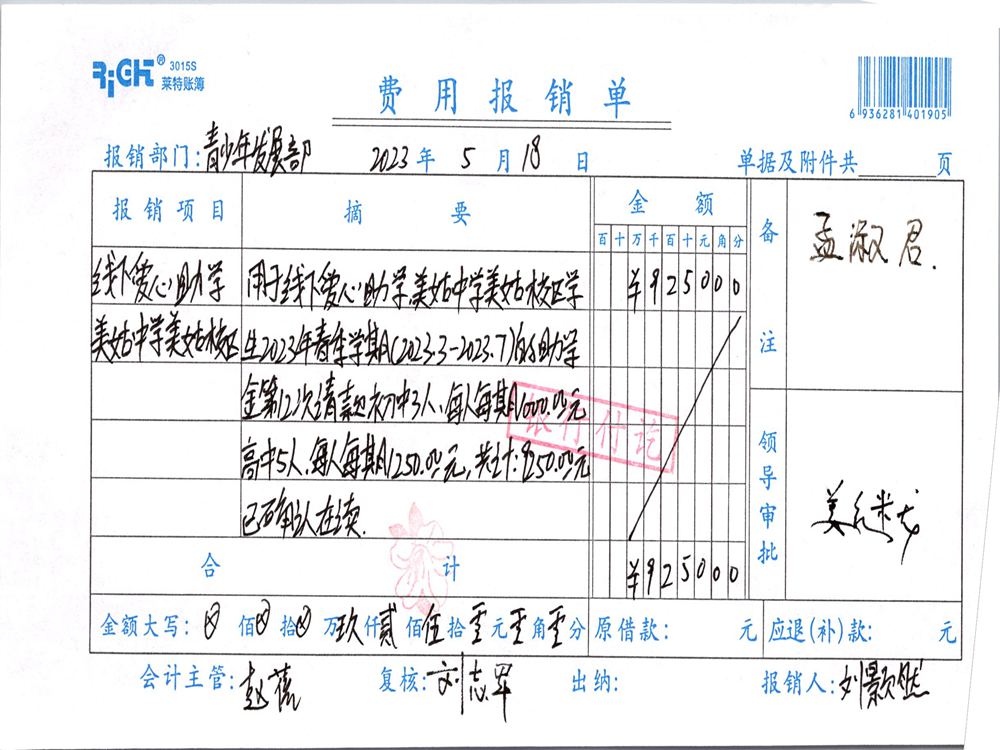 RiCH® 3015S
莱特账簿
费用报销单
6 936281 401905
报销部门:青少年发展部 2023年5月18日 单据及附件共 页
报销项目 摘要 金额 备注
百十万千百十元角分
孟淑君.
线下爱心助学 用于线下爱心助学美姑中学美姑校区学 ¥925000
美姑中学美姑校区 生2023年春季学期(2023.3-2023.7)的助学
金第12次请款初中3人,每人每期1000.00元
银行付讫
高中5人,每人每期1250.00元,共计:9250.00元
已确认在读.
领导审批
合计 ¥925000
金额大写:⊗佰⊗拾⊗万玖仟贰佰伍拾零元零角零分 原借款: 元 应退(补)款: 元
会计主管: 复核:刘志军 出纳: 报销人:刘颢然